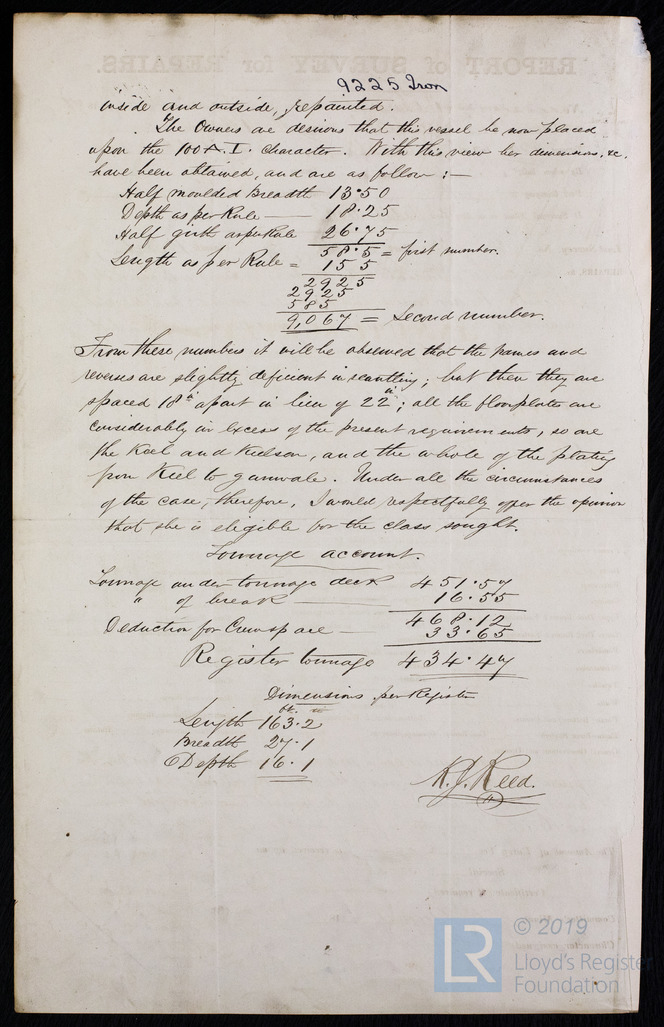 9225 Iron
inside and outside, repainted.
The Owners are desirous that this vessel be now placed
upon the 100 A. I. character. With this view her dimensions, &c.
have been obtained, and are as follow :—
Half moulded Breadth 13.50
Depth as per Rule — 18.25
Half girth as per Rule 26.75
58.5 = first number.
Length as per Rule = 155
2925
2925
585
9,067 = Second number.
From these numbers it will be observed that the frames and
reverses are slightly deficient in scantling; but then they are
spaced 18 in apart in lieu of 22 in; all the floorplates are
considerably in excess of the present requirements, so are
the Keel and Keelson, and the whole of the plating
from Keel to gunwale. Under all the circumstances
of the case, therefore, I would respectfully offer the opinion
that she is eligible for the class sought.
Tonnage account.
Tonnage under tonnage deck 451.57
" of break — 16.55
468.12
Deduction for Crewspace — 33.65
Register tonnage 434.47
Dimensions per Register
Length 163.2
Breadth 27.1
Depth 16.1
R. J. Reed.
REPORT of SURVEY for REPAIRS.
LR
© 2019
Lloyd's Register
Foundation